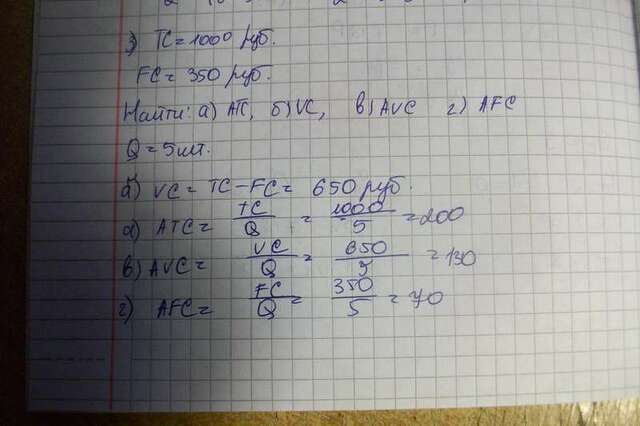 3) TC = 1000 руб.
FC = 350 руб.
Найти: а) АТС, б) VC, в) AVC г) AFC
Q = 5 шт.
б) VC = TC - FC = 650 руб.
а) ATC = TC/Q = 1000/5 = 200
в) AVC = VC/Q = 650/5 = 130
г) AFC = FC/Q = 350/5 = 70